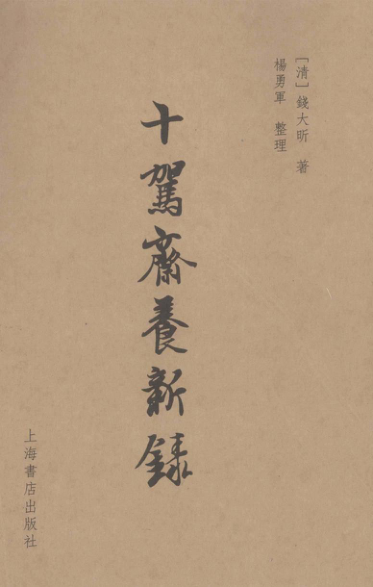 ［清］錢大昕 著
楊勇軍 整理
十駕齋養新録
上海書店出版社